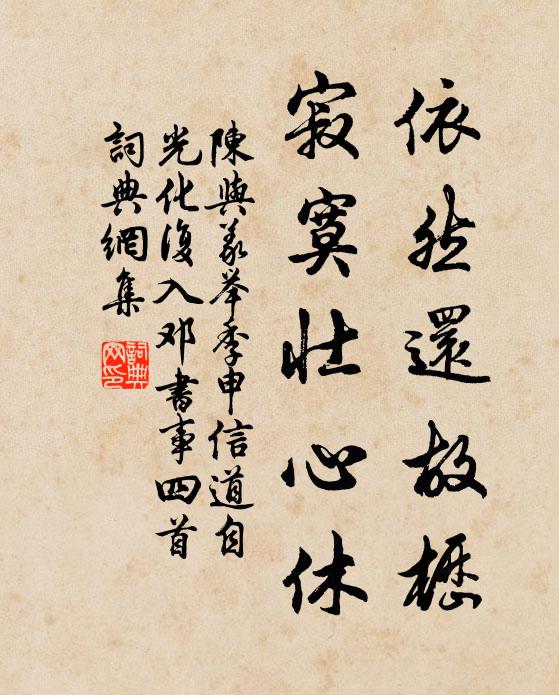 依然還故櫪
寂寞壯心休
陳與義举季申信道自
光化復入邓書事四首
詞典網集
詞典網印